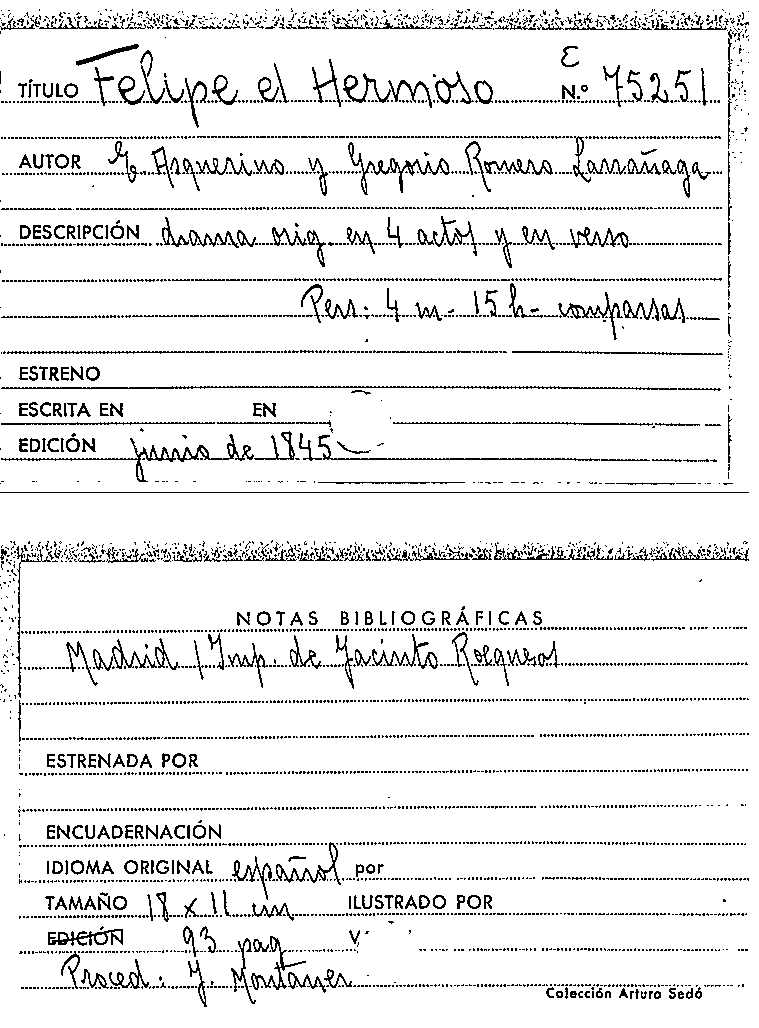 TÍTULO Felipe el Hermoso ε N.º 75251
AUTOR E. Asquerino y Gregorio Romero Larrañaga
DESCRIPCIÓN drama orig. en 4 actos y en verso
Pers: 4 m- 15 h- comparsas
ESTRENO
ESCRITA EN EN
EDICIÓN junio de 1845
NOTAS BIBLIOGRÁFICAS
Madrid / Imp. de Jacinto
ESTRENADA POR
ENCUADERNACIÓN
IDIOMA ORIGINAL español por
TAMAÑO 18 x 11 cm ILUSTRADO POR
EDICIÓN 93 pag V
Proced: J. Montaner
Colección Arturo Sedó